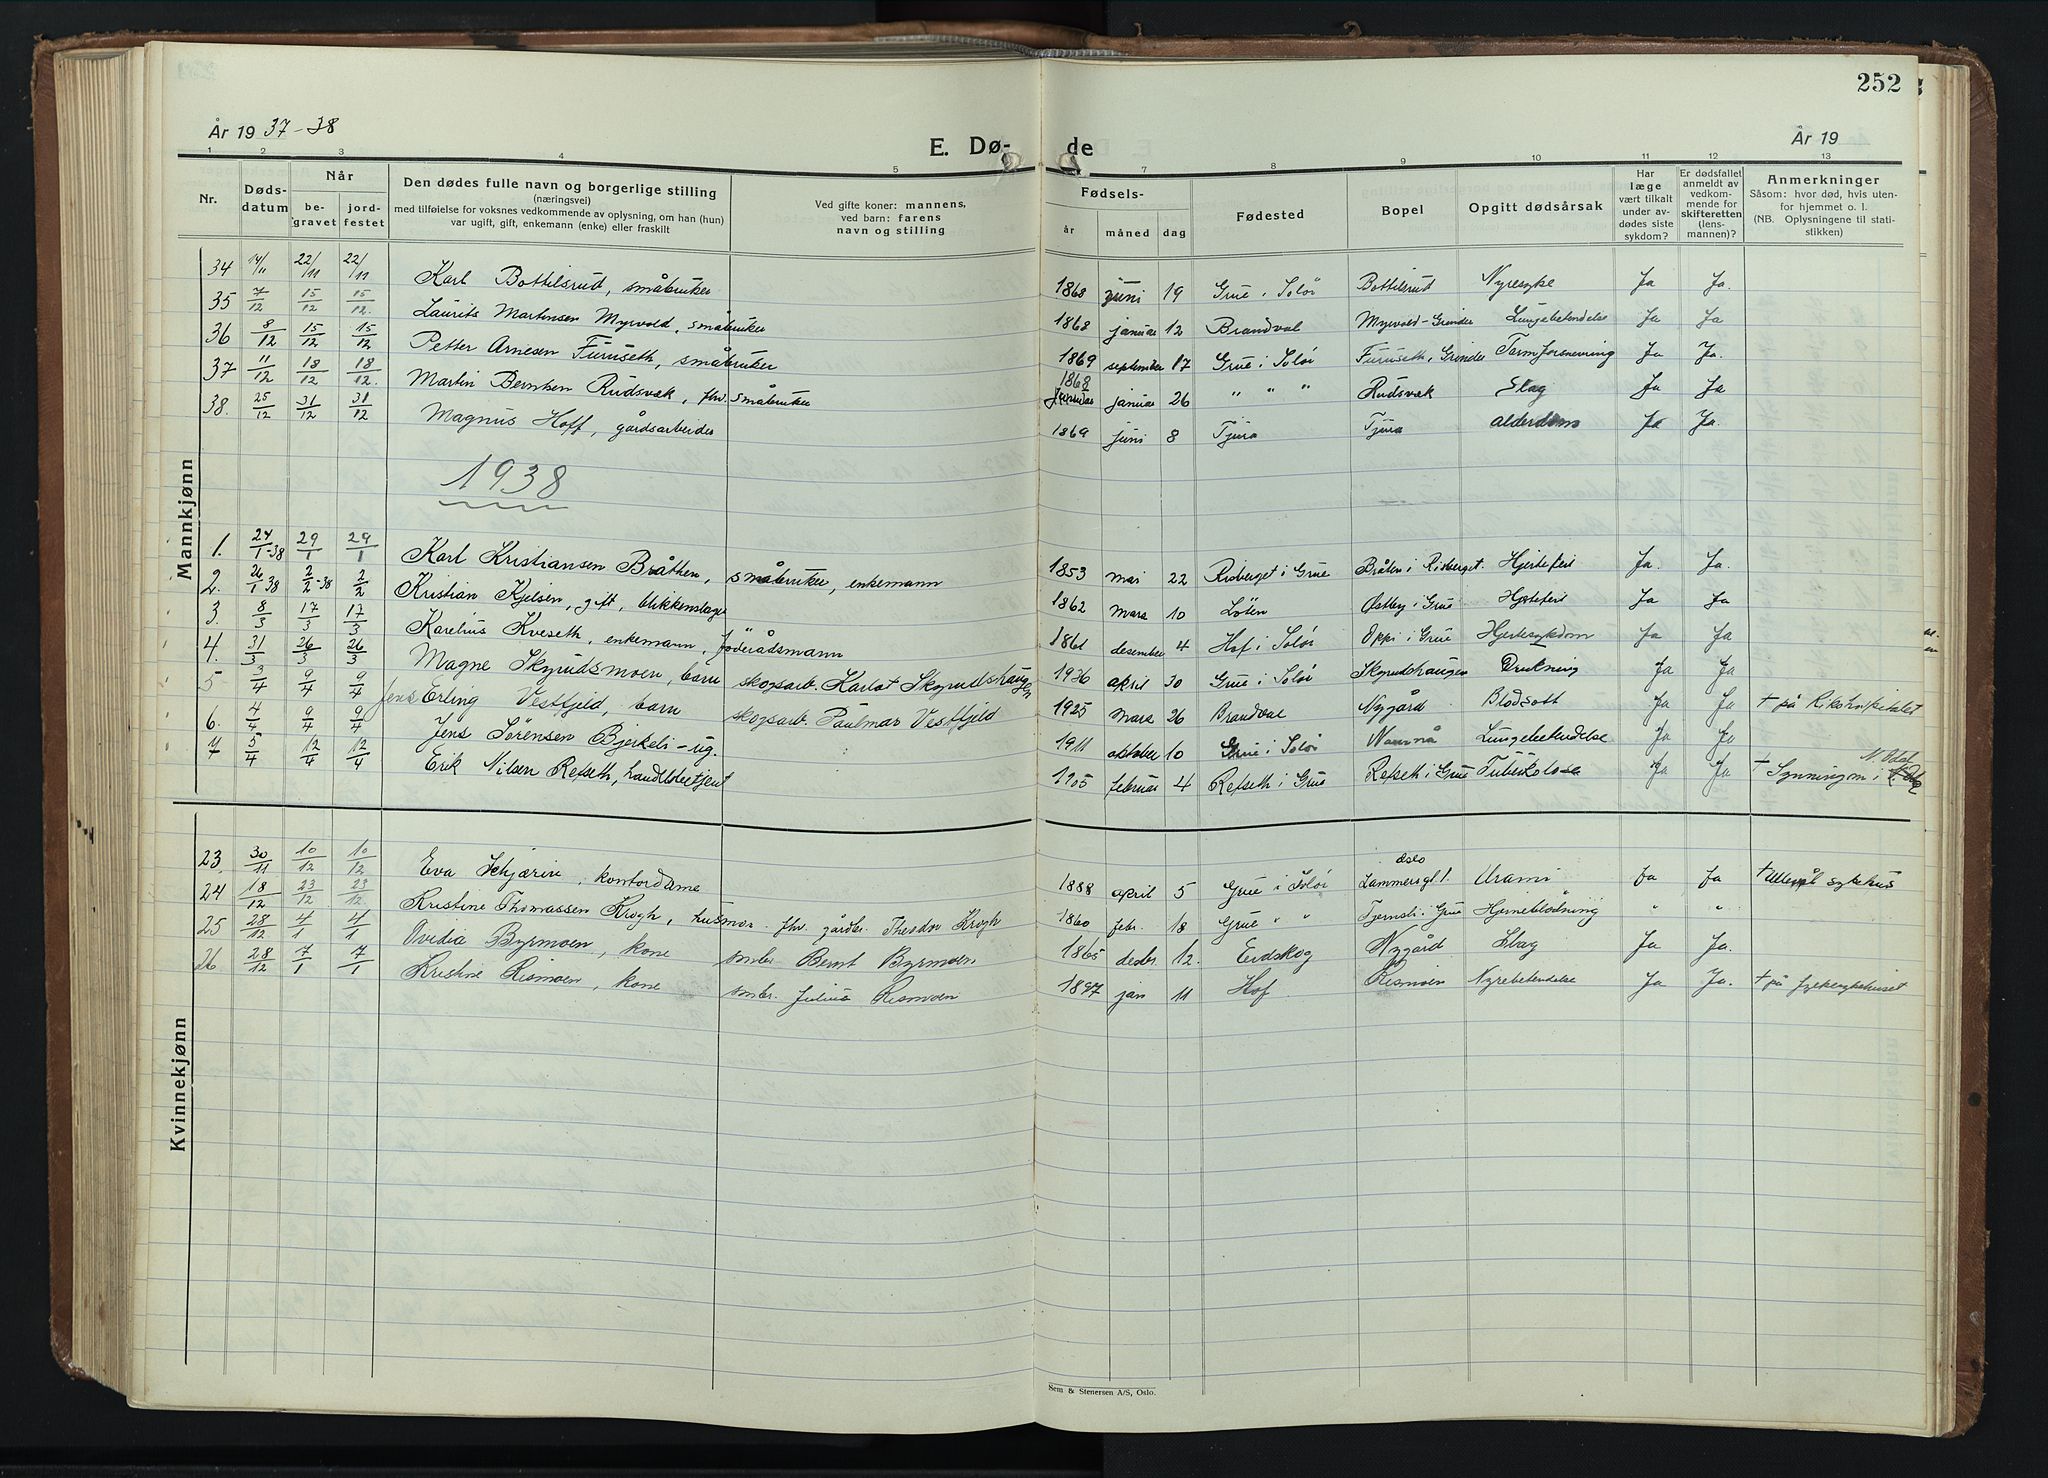 252
År 19 37-38
E. Dø- de
År 19
1 2 3 4 5 7 8 9 10 11 12 13
Nr.
Døds-datum
Når
be-gravet
jord-festet
Den dødes fulle navn og borgerlige stilling
(næringsvei)
med tilføielse for voksnes vedkommende av oplysning, om han (hun)
var ugift, gift, enkemann (enke) eller fraskilt
Ved gifte koner: mannens,
ved barn: farens
navn og stilling
Fødsels-
år måned dag
Fødested
Bopel
Opgitt dødsårsak
Har læge vært tilkalt under avdødes siste sykdom?
Er dødsfallet anmeldt av vedkommende for skifteretten (lensmannen)?
Anmerkninger
Såsom: hvor død, hvis utenfor hjemmet o. l.
(NB. Oplysningene til statistikken)
Mannkjønn
34 14/11 22/11 22/11 Karl Bottilsrud, småbruker 1868 juni 19 Grue i Solør Bottilsrud Nyresyke Ja Ja.
35 7/12 15/12 15/12. Laurits Martinsen Myrvold, småbruker 1868 januar 12 Brandval Myrvold-Grinder Lungebetendelse Ja Ja
36 8/12 15/12 15/12 Petter Arnesen Furuseth, småbruker 1869 september 17 Grue i Solør Furuseth, Grinder Tarmforsnevring Ja Ja.
37 11/12 18/12 18/12. Martin Berntsen Rudsvæk, fhv. småbruker 1868 januar 26 " " " Rudsvæk Slag Ja Ja
38. 25/12 31/12 31/12 Magnus Hoff, gårdsarbeider 1869 juni 8 Tjura Tjura alderdom Ja Ja.
1938
1. 24/1-38 29/1 29/1 Karl Kristiansen Bråthen, småbruker, enkemann 1853 mai 22 Risberget i Grue Bråten i Risberget. Hjertefeil Ja. Ja.
2. 26/1 38 2/2-38 2/2 Kristian Kjelsen, gift, blikkenslager 1862 mars 10 Løten Østby i Grue Hjertefeil Ja Ja
3. 8/3 17/3 17/3 Karelius Kveseth, enkemann, føderådsmann 1861 desember 4 Hof i Solør Oppi i Grue Hjertesykdom Ja Ja
4. 31/3 26/3 26/3 Magne Skyrudsmoen, barn skogsarb. Karlot Skyrudshaugen 1936 april 30 Grue i Solør Skyrudshaugen Drukning Ja Ja
5 3/4 9/4 9/4 Jens Erling Vestfjeld, barn skogsarb. Paulmar Vestfjeld 1925 mars 26 Brandval Nygård Blodsott Ja Ja † på Rikshospitalet
6. 4/4 9/4 9/4 Jens Sørensen Bjerkeli - ug. 1911 oktober 10 Grue i Solør Namnå Lungebetendelse Ja Ja
7 5/4 12/4 12/4 Erik Nilsen Refseth, handelsbetjent 1905 februar 4 Refseth i Grue Refseth i Grue Tuberkolose Ja Ja † Synningom i
Kvinnekjønn
23. 30/11 10/12 10/12 Eva Schjærin, kontordame 1888 april 5 Grue i Solør Oslo Lammersgt. 1. Urami Ja Ja † Ullevål sykehus
24 18/12 23/12 23/12. Kristine Thomassen Krogh, husmor. fhv. gårdbr. Theodor Krogh 1860 febr. 18 Grue " " Tjernsli i Grue Hjerneblødning " "
25 28/12 4/1 4/1 Ovidia Byrmoen, kone smbr. Bernt Byrmoen 1865 desbr. 12. Eidskog Nygård Slag Ja Ja.
26 28/12 7/1 7/1 Kristine Rismoen, kone smbr. Julius Rismoen 1897 jan 11 Hof Rismoen Nyrebetendelse Ja Ja. † på fylkesykehuset
Sem & Stenersen A/S, Oslo.